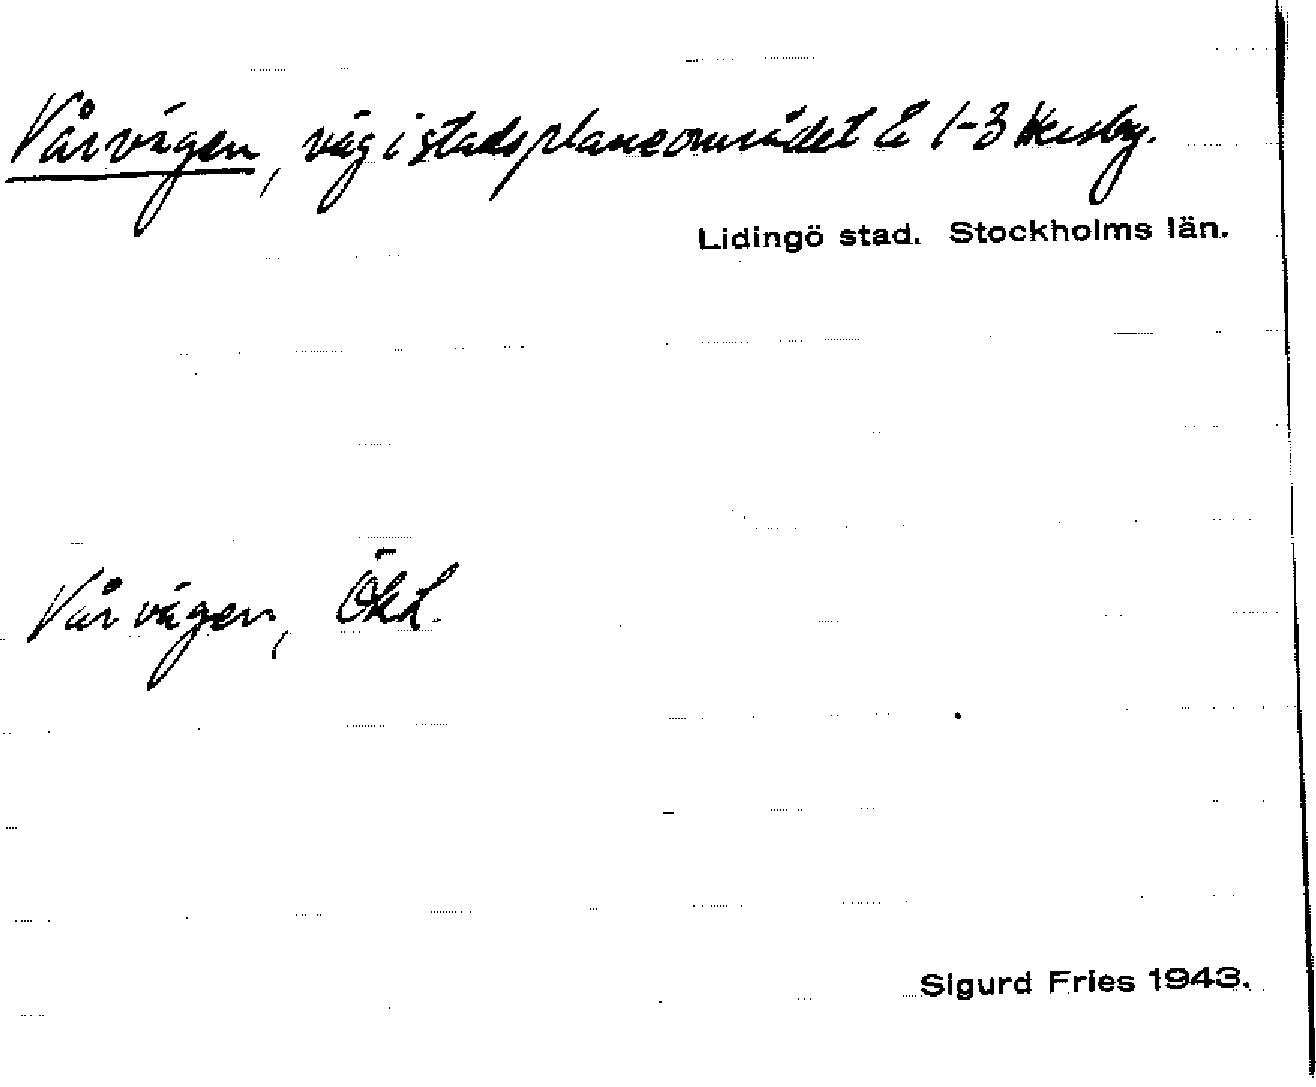 Vårvägen, väg i stadsplaneområdet å 1-3 Hersby.
Lidingö stad. Stockholms län.
Vårvägen, ÖkL.
Sigurd Fries 1943.